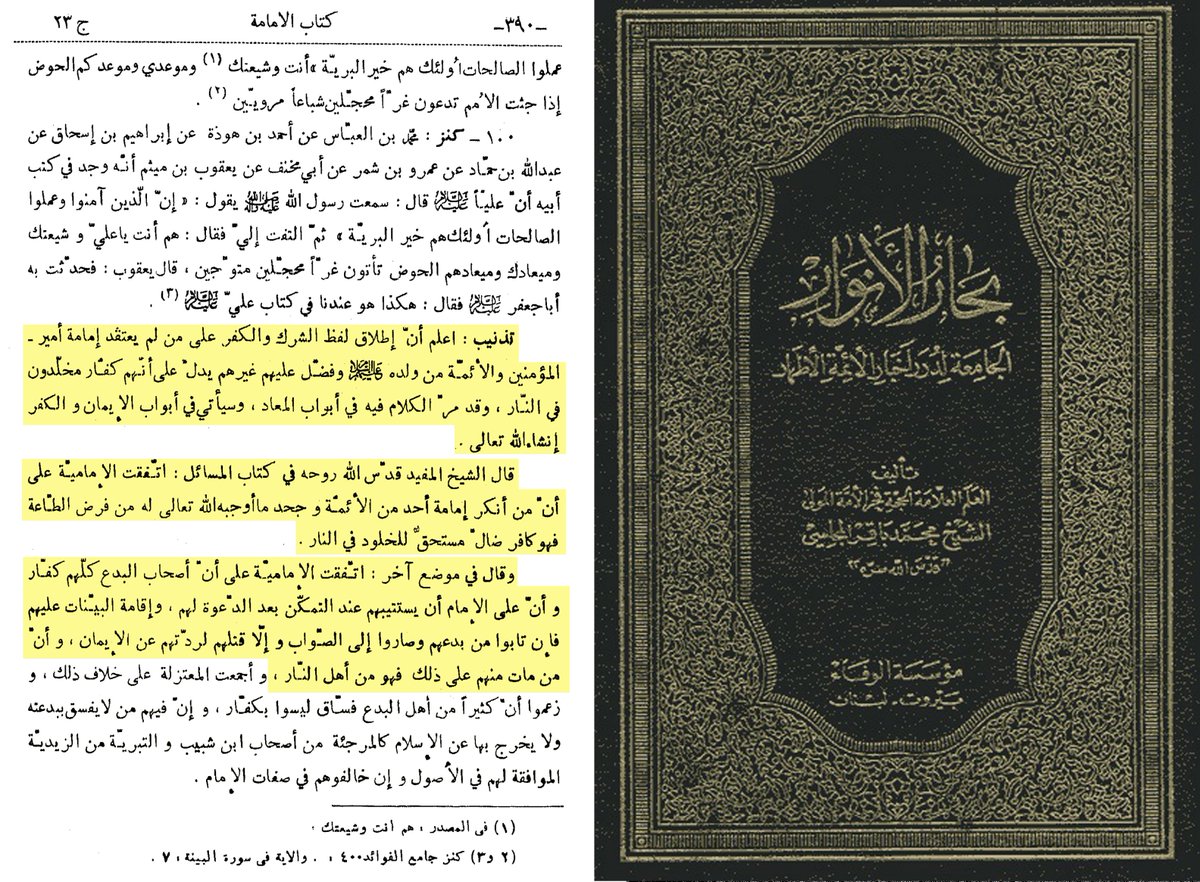 -٣٩٠- كتاب الامامة ج ٢٣
عملوا الصالحات اُولئك هم خير البريّة » أنت وشيعتك (١) وموعدي وموعدكم الحوض
إذا جئت الاُمم تدعون غرّاً محجّلين شباعاً مرويّين (٢) .
١٠٠ ـ كنز : محمّد بن العبّاس عن أحمد بن هوذة عن إبراهيم بن إسحاق عن
عبدالله بن حمّاد عن عمرو بن شمر عن أبي مخنف عن يعقوب بن ميثم أنّه وجد في كتب
أبيه أنّ عليّاً عليه السلام قال : سمعت رسول الله صلى الله عليه وآله يقول : « إنّ الّذين آمنوا وعملوا
الصالحات اُولئك هم خير البريّة » ثمّ التفت إليّ فقال : هم أنت ياعليّ و شيعتك
وميعادك وميعادهم الحوض تأتون غرّاً محجّلين متوّجين ، قال يعقوب : فحدّثت به
أباجعفر عليه السلام فقال : هكذا هو عندنا في كتاب عليّ عليه السلام (٣) .
تذنيب : اعلم أنّ إطلاق لفظ الشرك والكفر على من لم يعتقد إمامة أمير ـ
المؤمنين والأئمّة من ولده عليهم السلام وفضّل عليهم غيرهم يدلّ على أنّهم كفّار مخلّدون
في النّار ، وقد مرّ الكلام فيه في أبواب المعاد ، وسيأتي في أبواب الإيمان و الكفر
إنشاءالله تعالى .
قال الشيخ المفيد قدّس الله روحه في كتاب المسائل : اتّفقت الإماميّة على
أنّ من أنكر إمامة أحد من الأئمّة و جحد ماأوجبه الله تعالى له من فرض الطّاعة
فهو كافر ضالّ مستحقّ للخلود في النار .
وقال في موضع آخر : اتّفقت الإماميّة على أنّ أصحاب البدع كلّهم كفّار
و أنّ على الإمام أن يستتيبهم عند التمكّن بعد الدّعوة لهم ، وإقامة البيّنات عليهم
فإن تابوا من بدعهم وصاروا إلى الصّواب و إلّا قتلهم لردّتهم عن الإيمان ، و أنّ
من مات منهم على ذلك فهو من أهل النّار ، و أجمعت المعتزلة على خلاف ذلك ، و
زعموا أنّ كثيراً من أهل البدع فسّاق ليسوا بكفّار ، و إنّ فيهم من لا يفسق ببدعته
ولا يخرج بها عن الإسلام كالمرجئة من أصحاب ابن شبيب و التبريّة من الزيديّة
الموافقة لهم في الاُصول و إن خالفوهم في صفات الإمام .
(١) في المصدر : هم انت وشيعتك .
(٢ و٣) كنز جامع الفوائد ٤٠٠ : . والاية في سورة البينة : ٧ .
بحار الأنوار
الجامعة لدرر أخبار الأئمة الأطهار
تأليف
العلم العلامة الحجة فخر الأمة المولى
الشيخ محمد باقر المجلسي
"قدس الله سره"
مؤسسة الوفاء
بيروت - لبنان